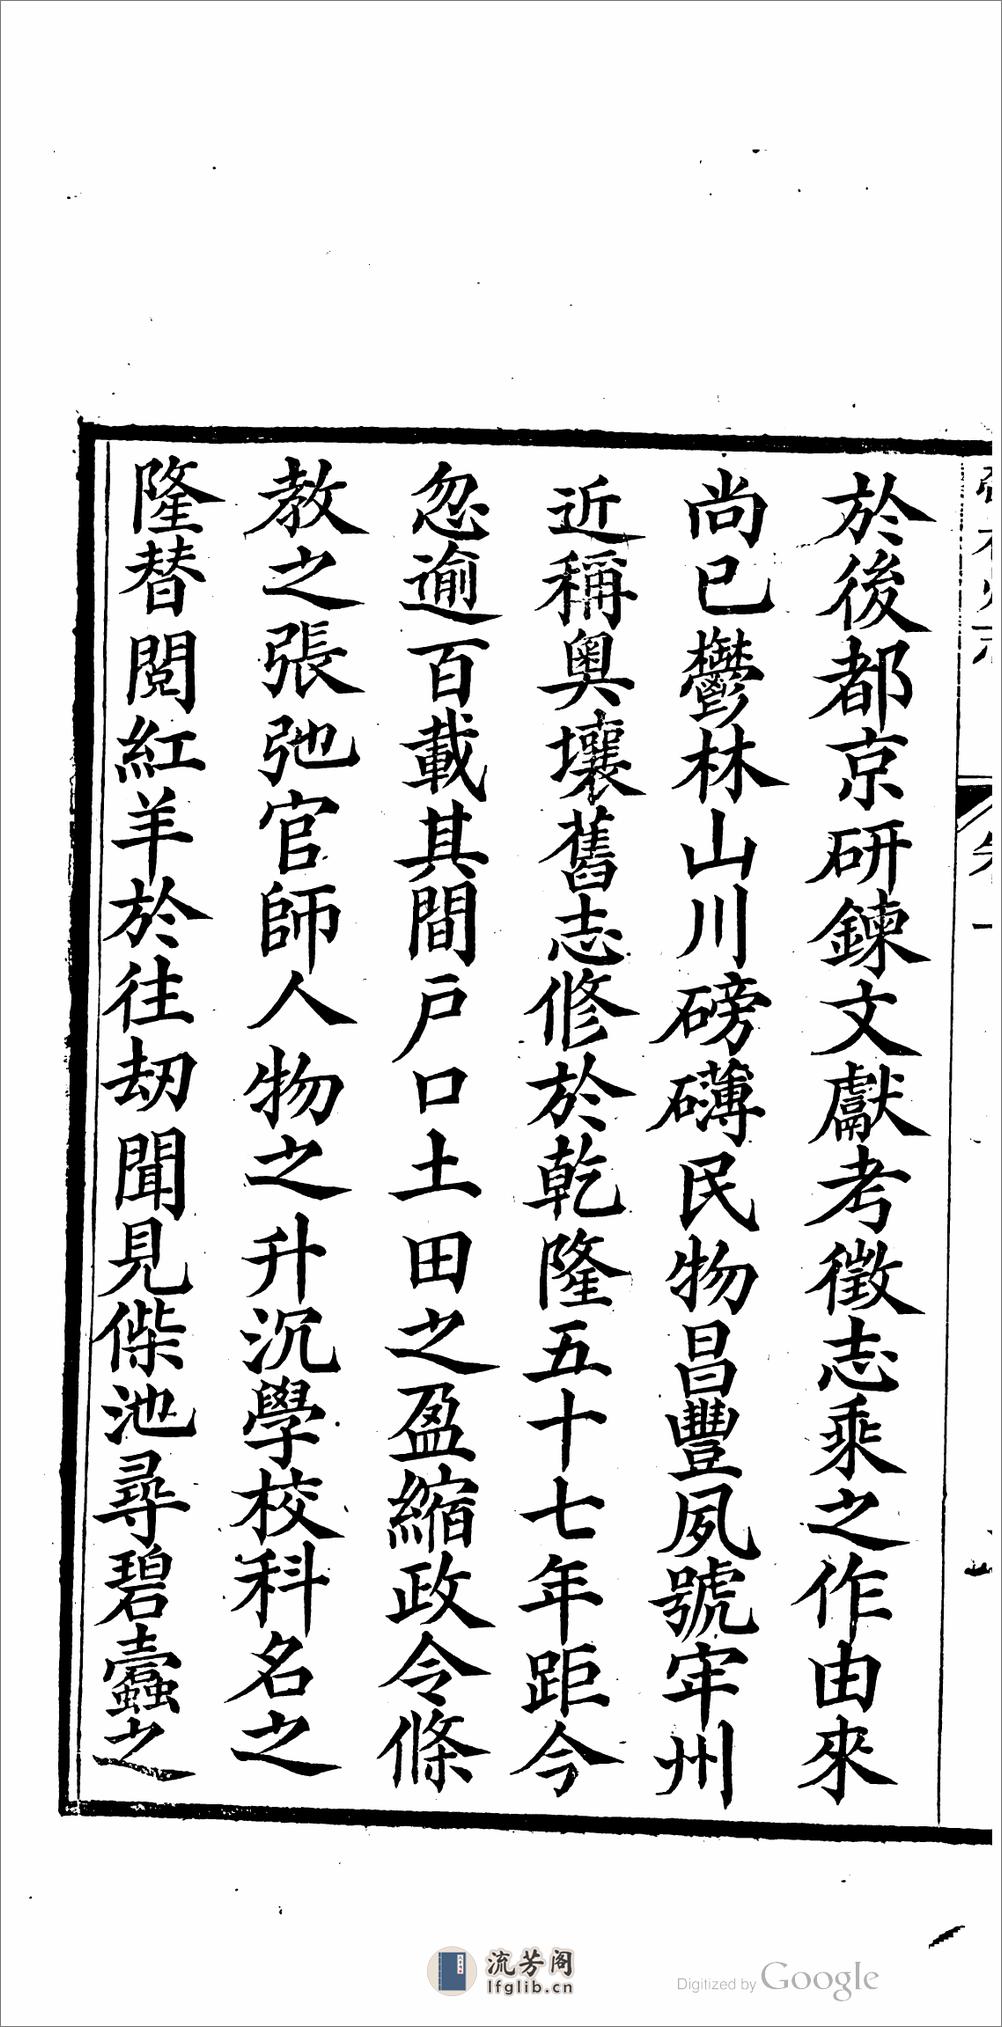 於後都京研鍊文獻考徵志乘之作由來
尚已鬱林山川磅礴民物昌豐夙號牢州
近稱奥壤舊志修於乾隆五十七年距今
忽逾百載其間戶口土田之盈縮政令條
教之張弛官師人物之升沉學校科名之
隆替閱紅羊於往劫聞見傑池尋碧蠹之
卷一
流芳阁
lfglib.cn
Digitized by Google